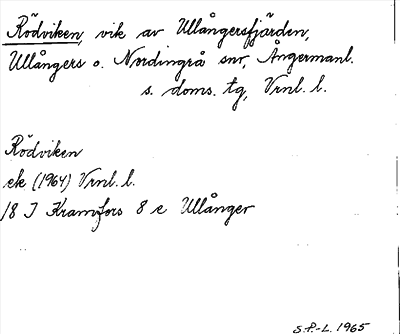 Rödviken, vik av Ullångersfjärden,
Ullångers o. Nordingrå snr, Ångermanl.
s. doms. tg, Vrnl. l.
Rödviken
ek (1964) Vrnl. l.
18 J Kramfors 8 e Ullånger
S.P.-L. 1965